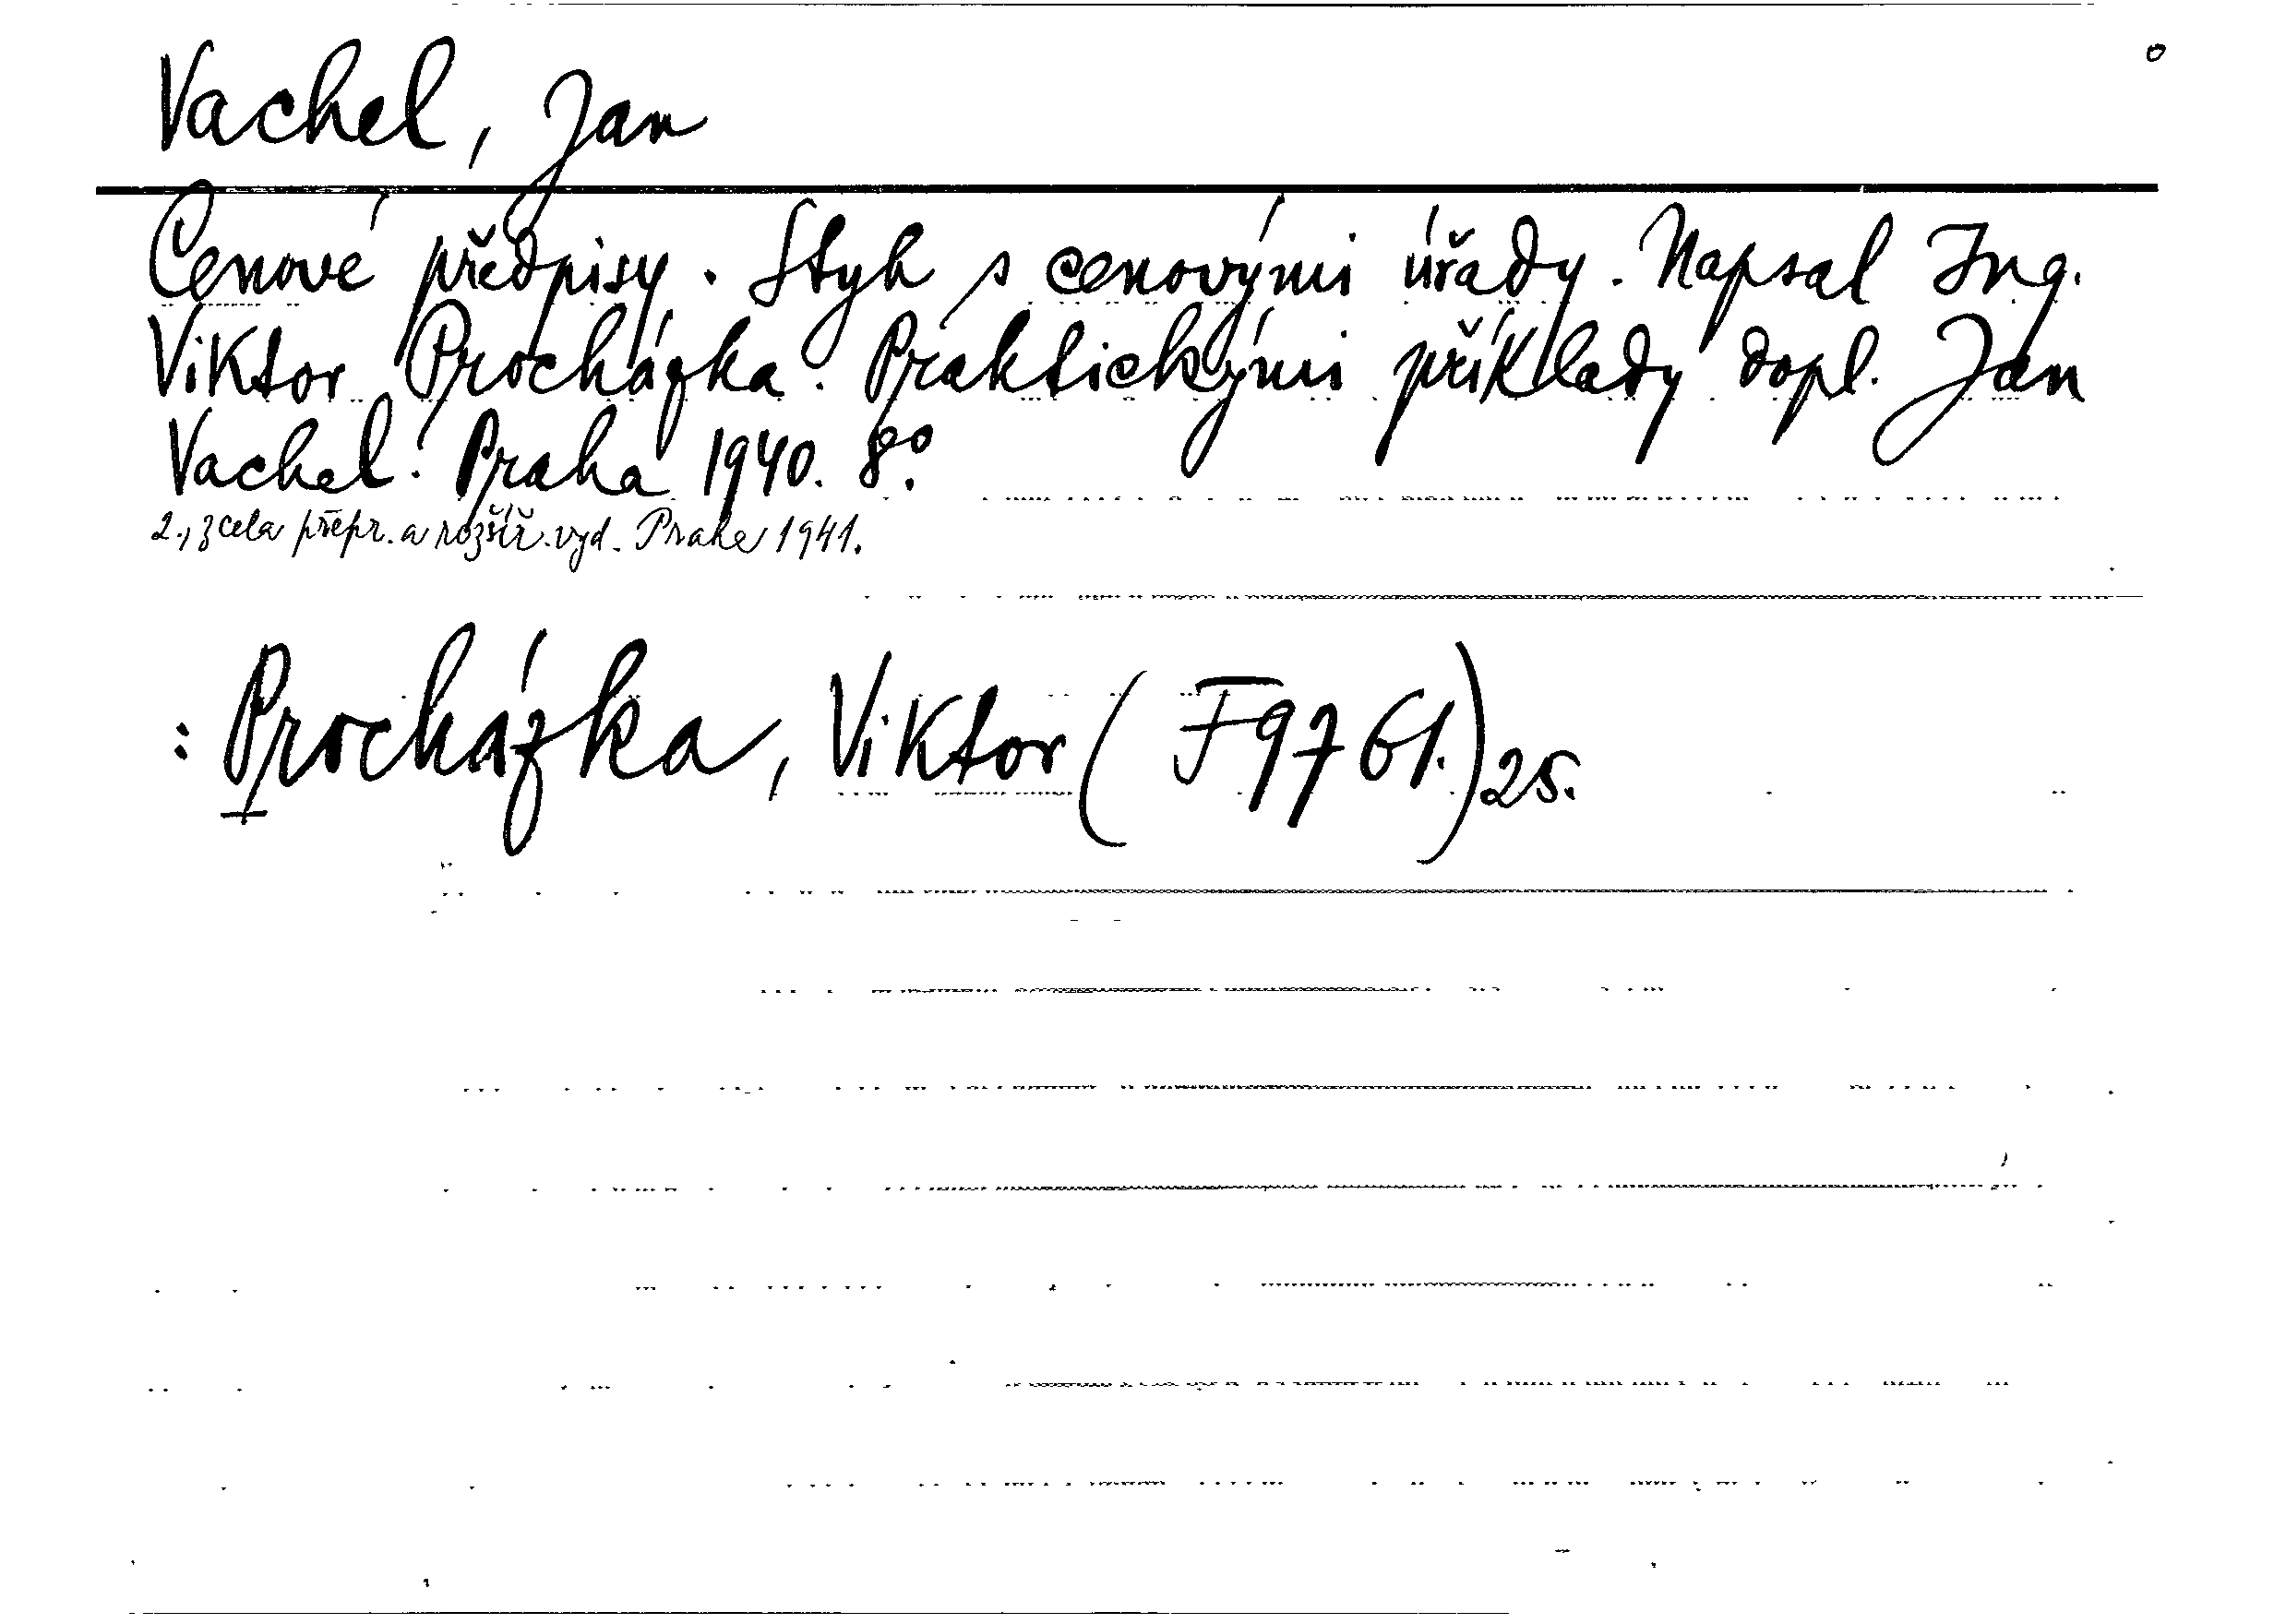 Vachel, Jan
Cenové předpisy. Styk s cenovými úřady. Napsal Ing.
Viktor Procházka. Praktickými příklady dopl. Jan
Vachel. Praha 1940. 8°.
2., zcela přepr. a rozšíř. vyd. Praha 1941.
: Procházka, Viktor (F 9761.) 25.